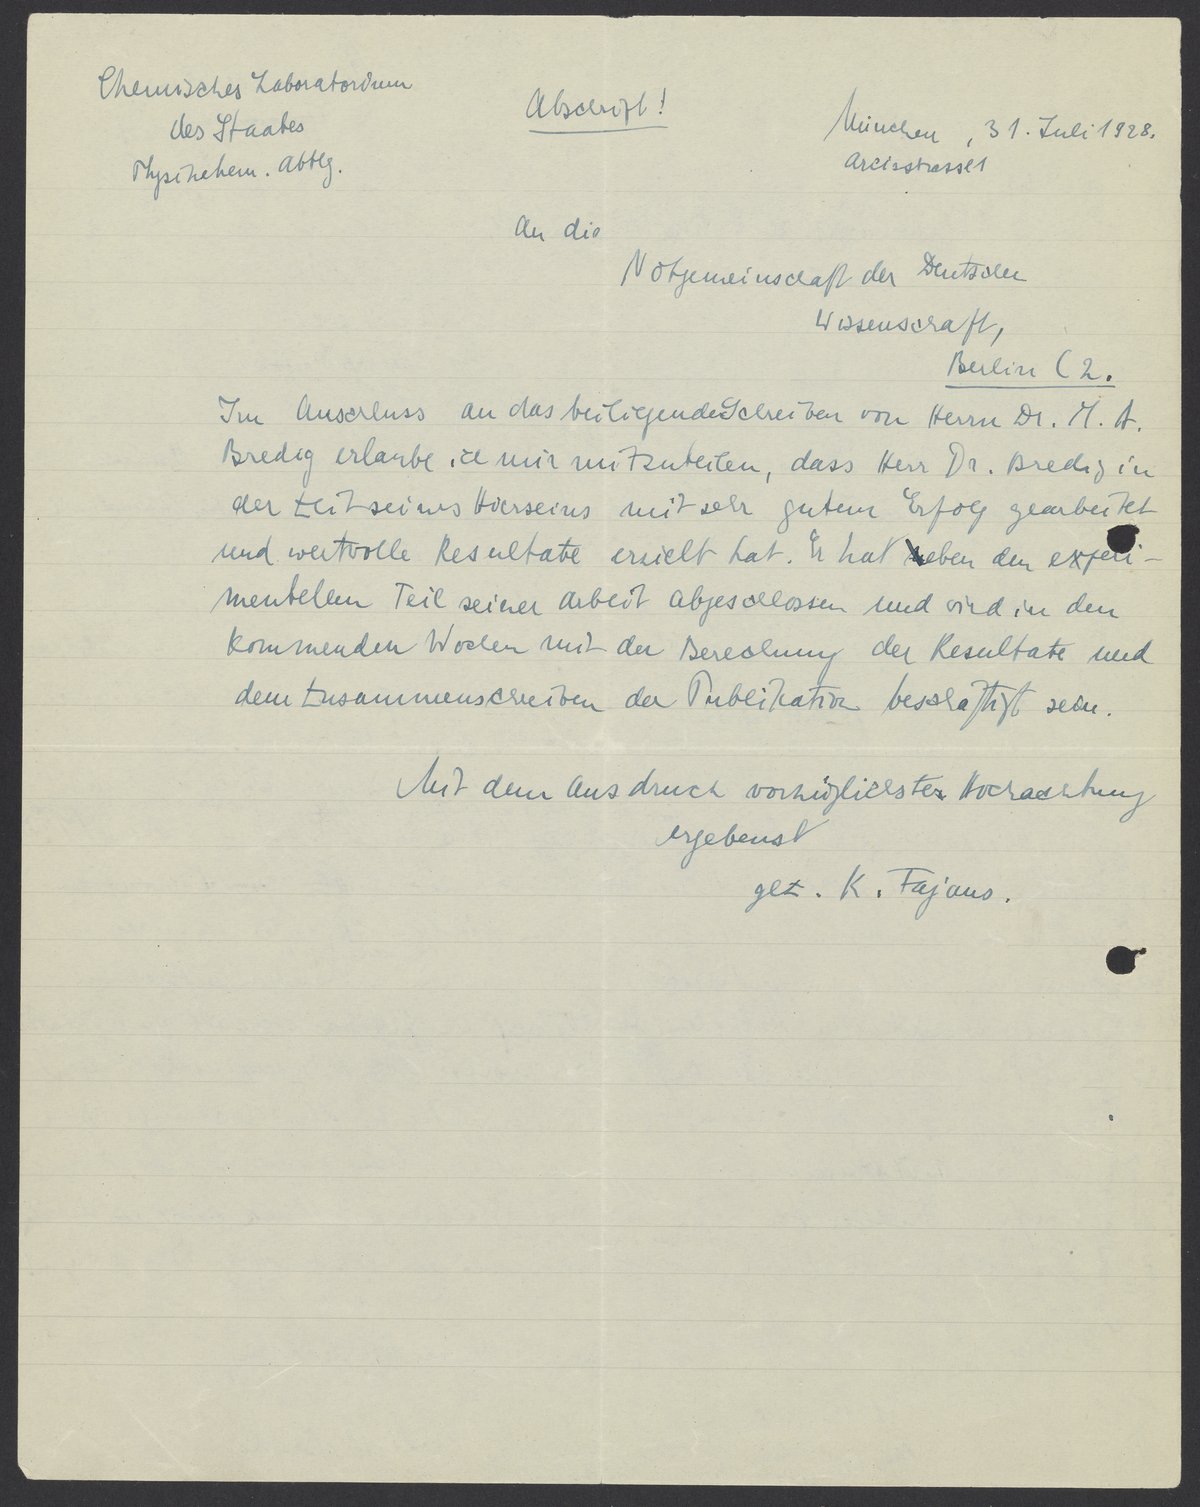 Chemisches Laboratorium
des Staates
Physikchem. Abtlg.
Abschrift!
München, 31. Juli 1928.
Arcisstrasse 1
An die
Notgemeinschaft der Deutschen
Wissenschaft,
Berlin C 2.
Im Anschluss an das beiliegende Schreiben von Herrn Dr. M. A.
Bredig erlaube ich mir mitzuteilen, dass Herr Dr. Bredig in
der Zeit seines Hierseins mit sehr gutem Erfolg gearbeitet
und wertvolle Resultate erzielt hat. Er hat eben den experi-
mentellen Teil seiner Arbeit abgeschlossen und wird in den
kommenden Wochen mit der Berechnung der Resultate und
dem Zusammenschreiben der Publikation beschäftigt sein.
Mit dem Ausdruck vorzüglichster Hochachtung
ergebenst
gez. K. Fajans.